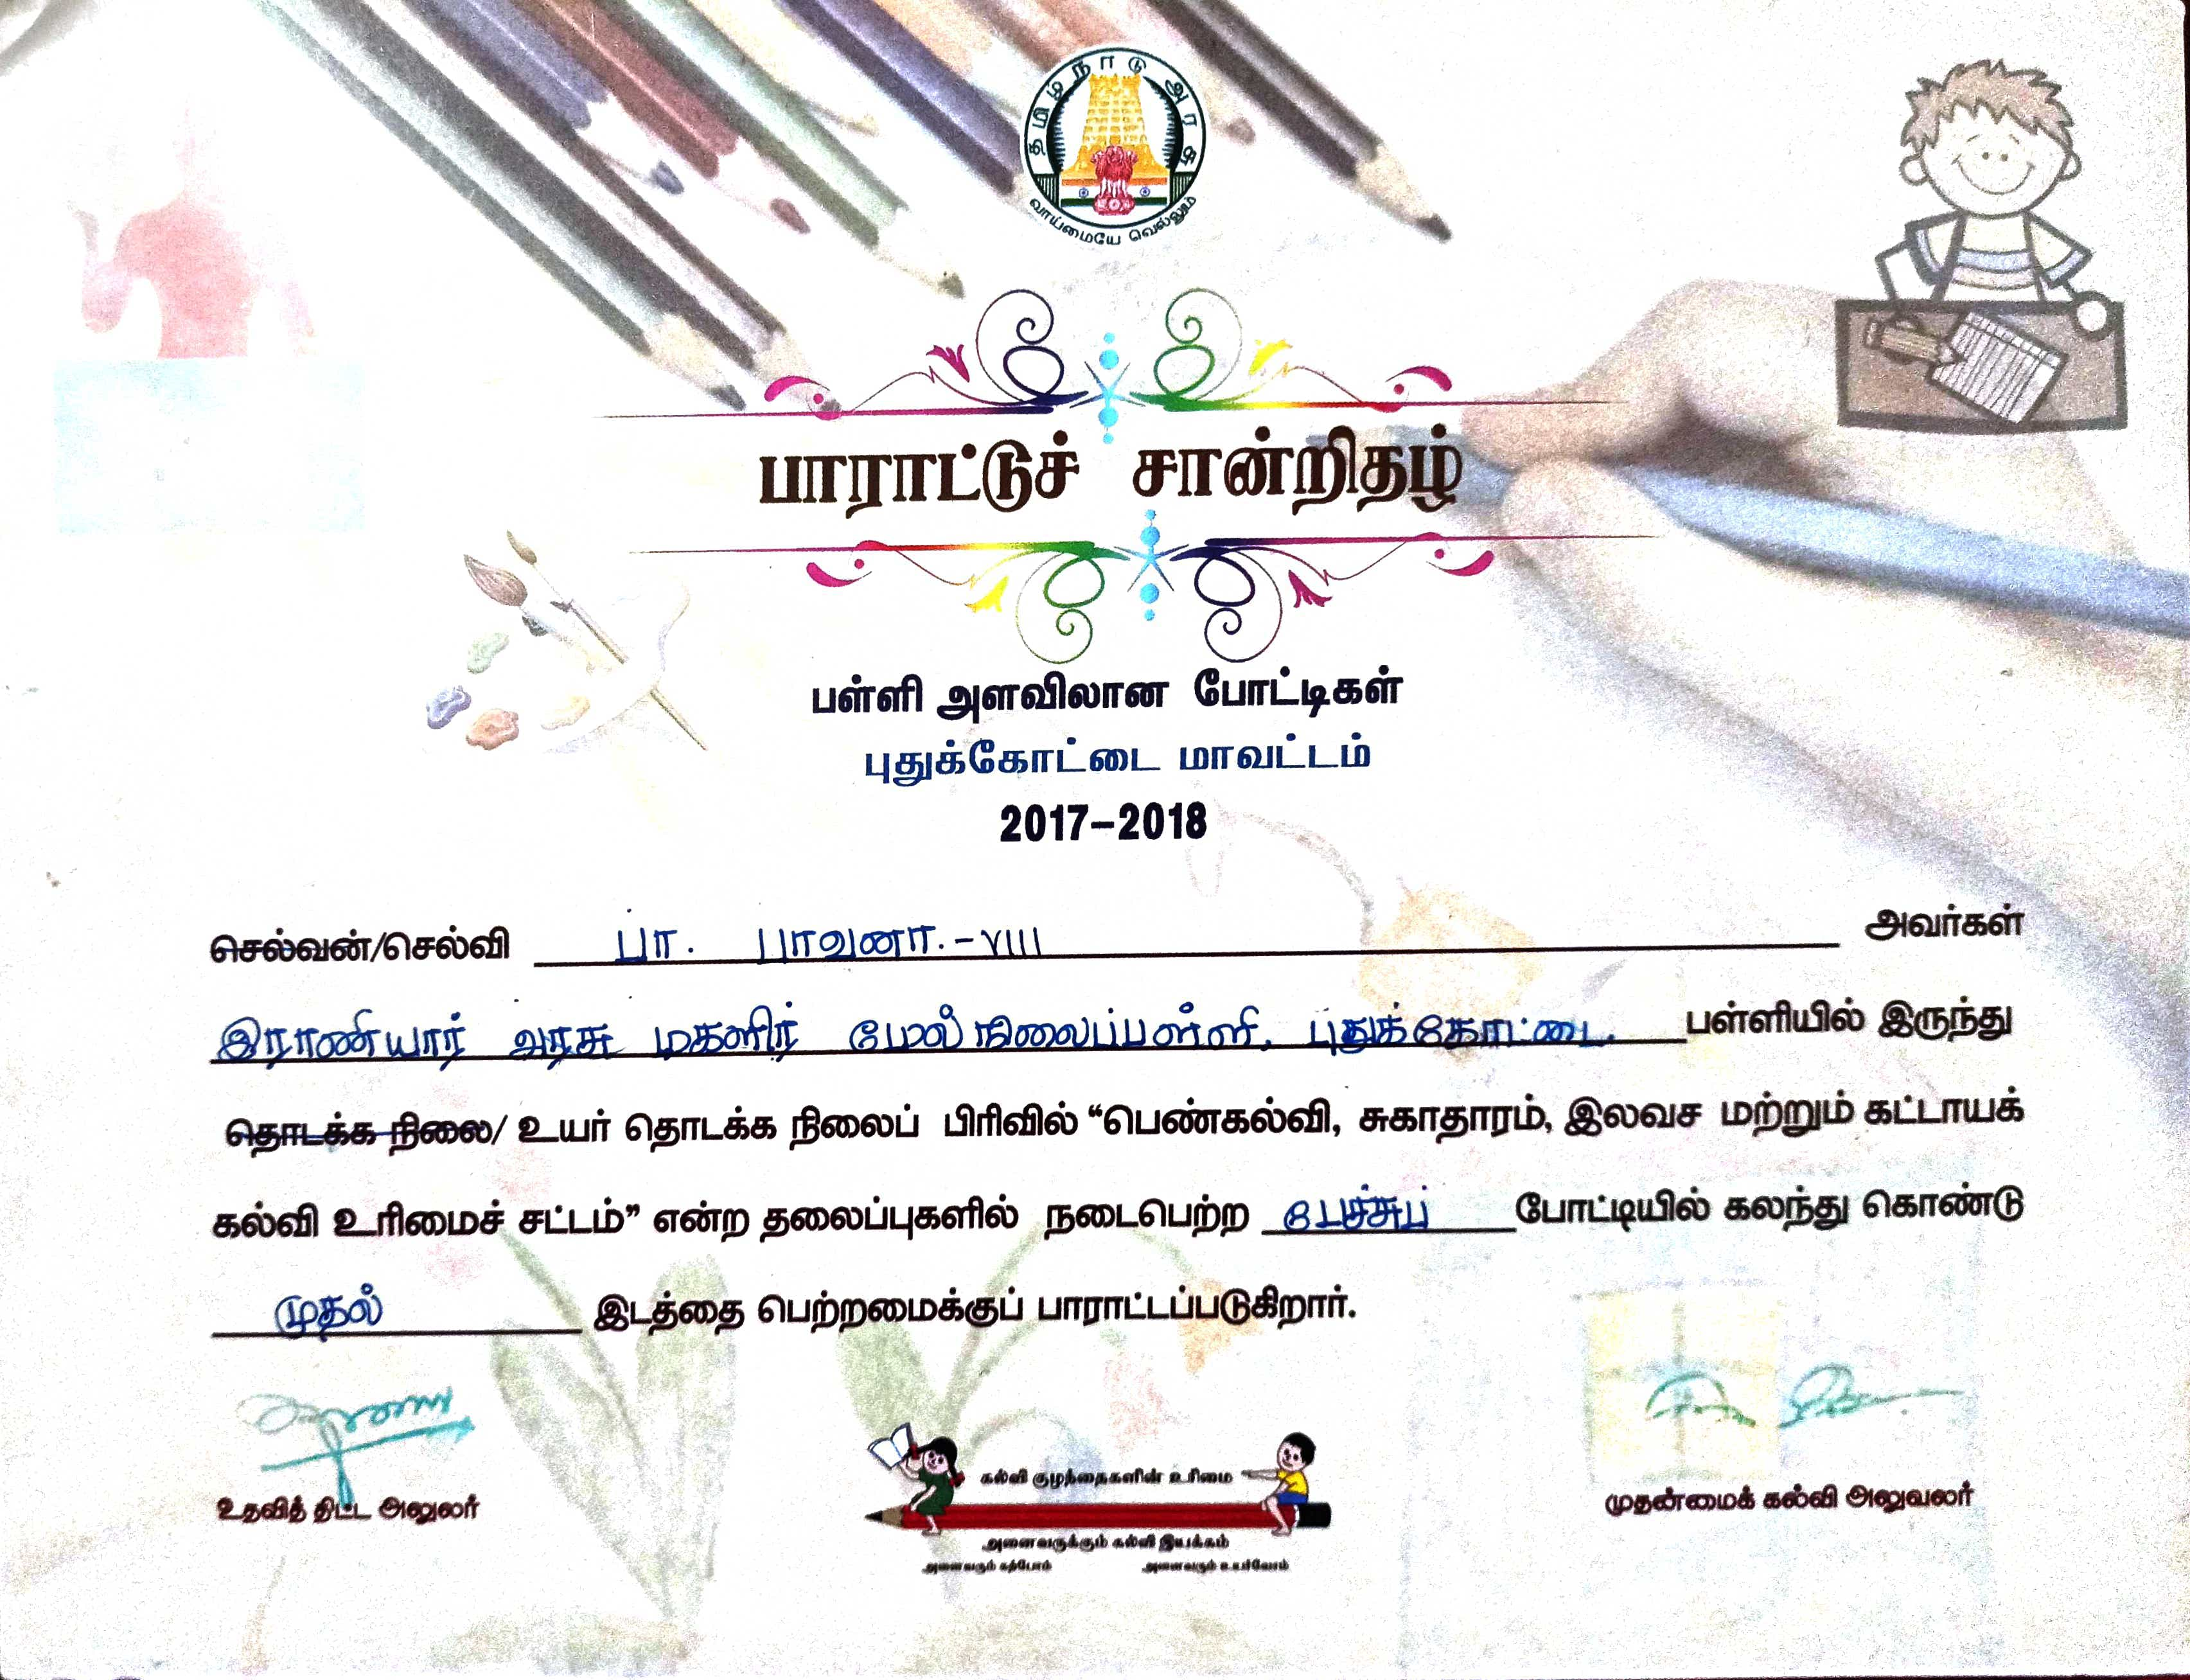 தமிழ்நாடு அரசு
வாய்மையே வெல்லும்
பாராட்டுச் சான்றிதழ்
பள்ளி அளவிலான போட்டிகள்
புதுக்கோட்டை மாவட்டம்
2017-2018
செல்வன்/செல்வி பா. பாவனா. - VIII அவர்கள்
இராணியார் அரசு மகளிர் மேல்நிலைப்பள்ளி, புதுக்கோட்டை. பள்ளியில் இருந்து
தொடக்க நிலை/ உயர் தொடக்க நிலைப் பிரிவில் “பெண்கல்வி, சுகாதாரம், இலவச மற்றும் கட்டாயக்
கல்வி உரிமைச் சட்டம்” என்ற தலைப்புகளில் நடைபெற்ற பேச்சுப் போட்டியில் கலந்து கொண்டு
முதல் இடத்தை பெற்றமைக்குப் பாராட்டப்படுகிறார்.
உதவித் திட்ட அலுலர்
கல்வி குழந்தைகளின் உரிமை
அனைவருக்கும் கல்வி இயக்கம்
அனைவரும் கற்போம் அனைவரும் உயர்வோம்
முதன்மைக் கல்வி அலுவலர்